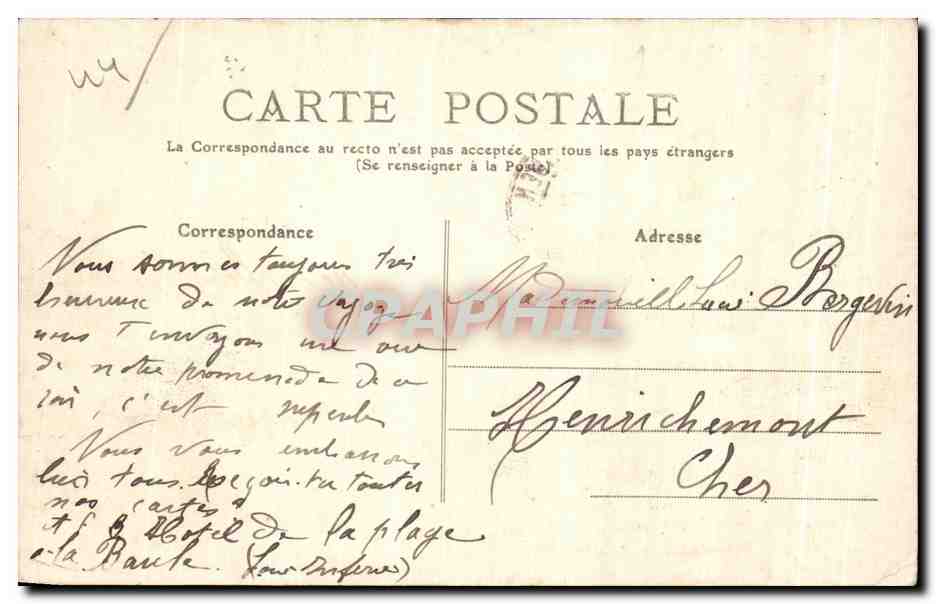 CARTE POSTALE
La Correspondance au recto n'est pas acceptée par tous les pays étrangers
(Se renseigner à la Poste)
Correspondance
Nous sommes toujours très
heureux de notre voyage
nous t'envoyons une vue
de notre promenade de ce
soir, c'est superbe
Nous vous embrassons
bien tous. Reçois-tu toutes
nos cartes
Hotel de la plage
à la Baule. (Loire Inferieure)
Adresse
Mademoiselle Lucie Bergevin
Henrichemont
Cher
CPAPHIL